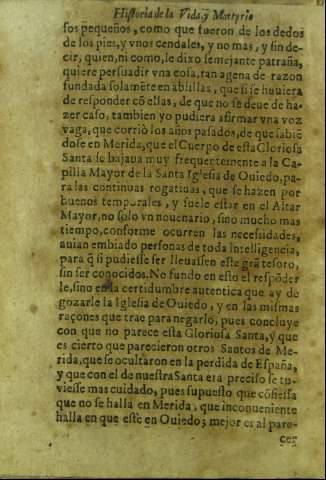 Historia de la Vida, y Martyrio
sos pequeños, como que fueron de los dedos
de los pies, y vnos cendales, y no mas, y sin de-
cir, quien, ni como, le dixo semejante patraña,
quiere persuadir vna cosa, tan agena de razon
fundada solamẽte en ablillas, que si se huuiera
de responder cõ ellas, de que no se deue de ha-
zer caso, tambien yo pudiera afirmar vna voz
vaga, que corriò los años pasados, de que sabiẽ
dose en Merida, que el Cuerpo de esta Gloriosa
Santa se bajaua muy frequentemente a la Ca-
pilla Mayor de la Santa Iglesia de Ouiedo, pa-
ra las continuas rogatiuas, que se hazen por
buenos temporales, y suele estar en el Altar
Mayor, no solo vn nouenario, sino mucho mas
tiempo, conforme ocurren las necessidades,
auian embiado personas de toda inteligencia,
para q̃ si pudiesse ser lleuassen este grã tesoro,
sin ser conocidos. No fundo en esto el respõder
le, sino en la certidumbre autentica que ay de
gozarle la Iglesia de Ouiedo, y en las mismas
raçones que trae para negarlo, pues concluye
con que no parece esta Gloriosa Santa, y que
es cierto que parecieron otros Santos de Me-
rida, que se ocultaron en la perdida de España,
y que con el de nuestra Santa era preciso se tu-
viesse mas cuidado, pues supuesto que cõfiessa
que no se halla en Merida, que inconueniente
halla en que estè en Ouiedo; mejor es al pare-
cer